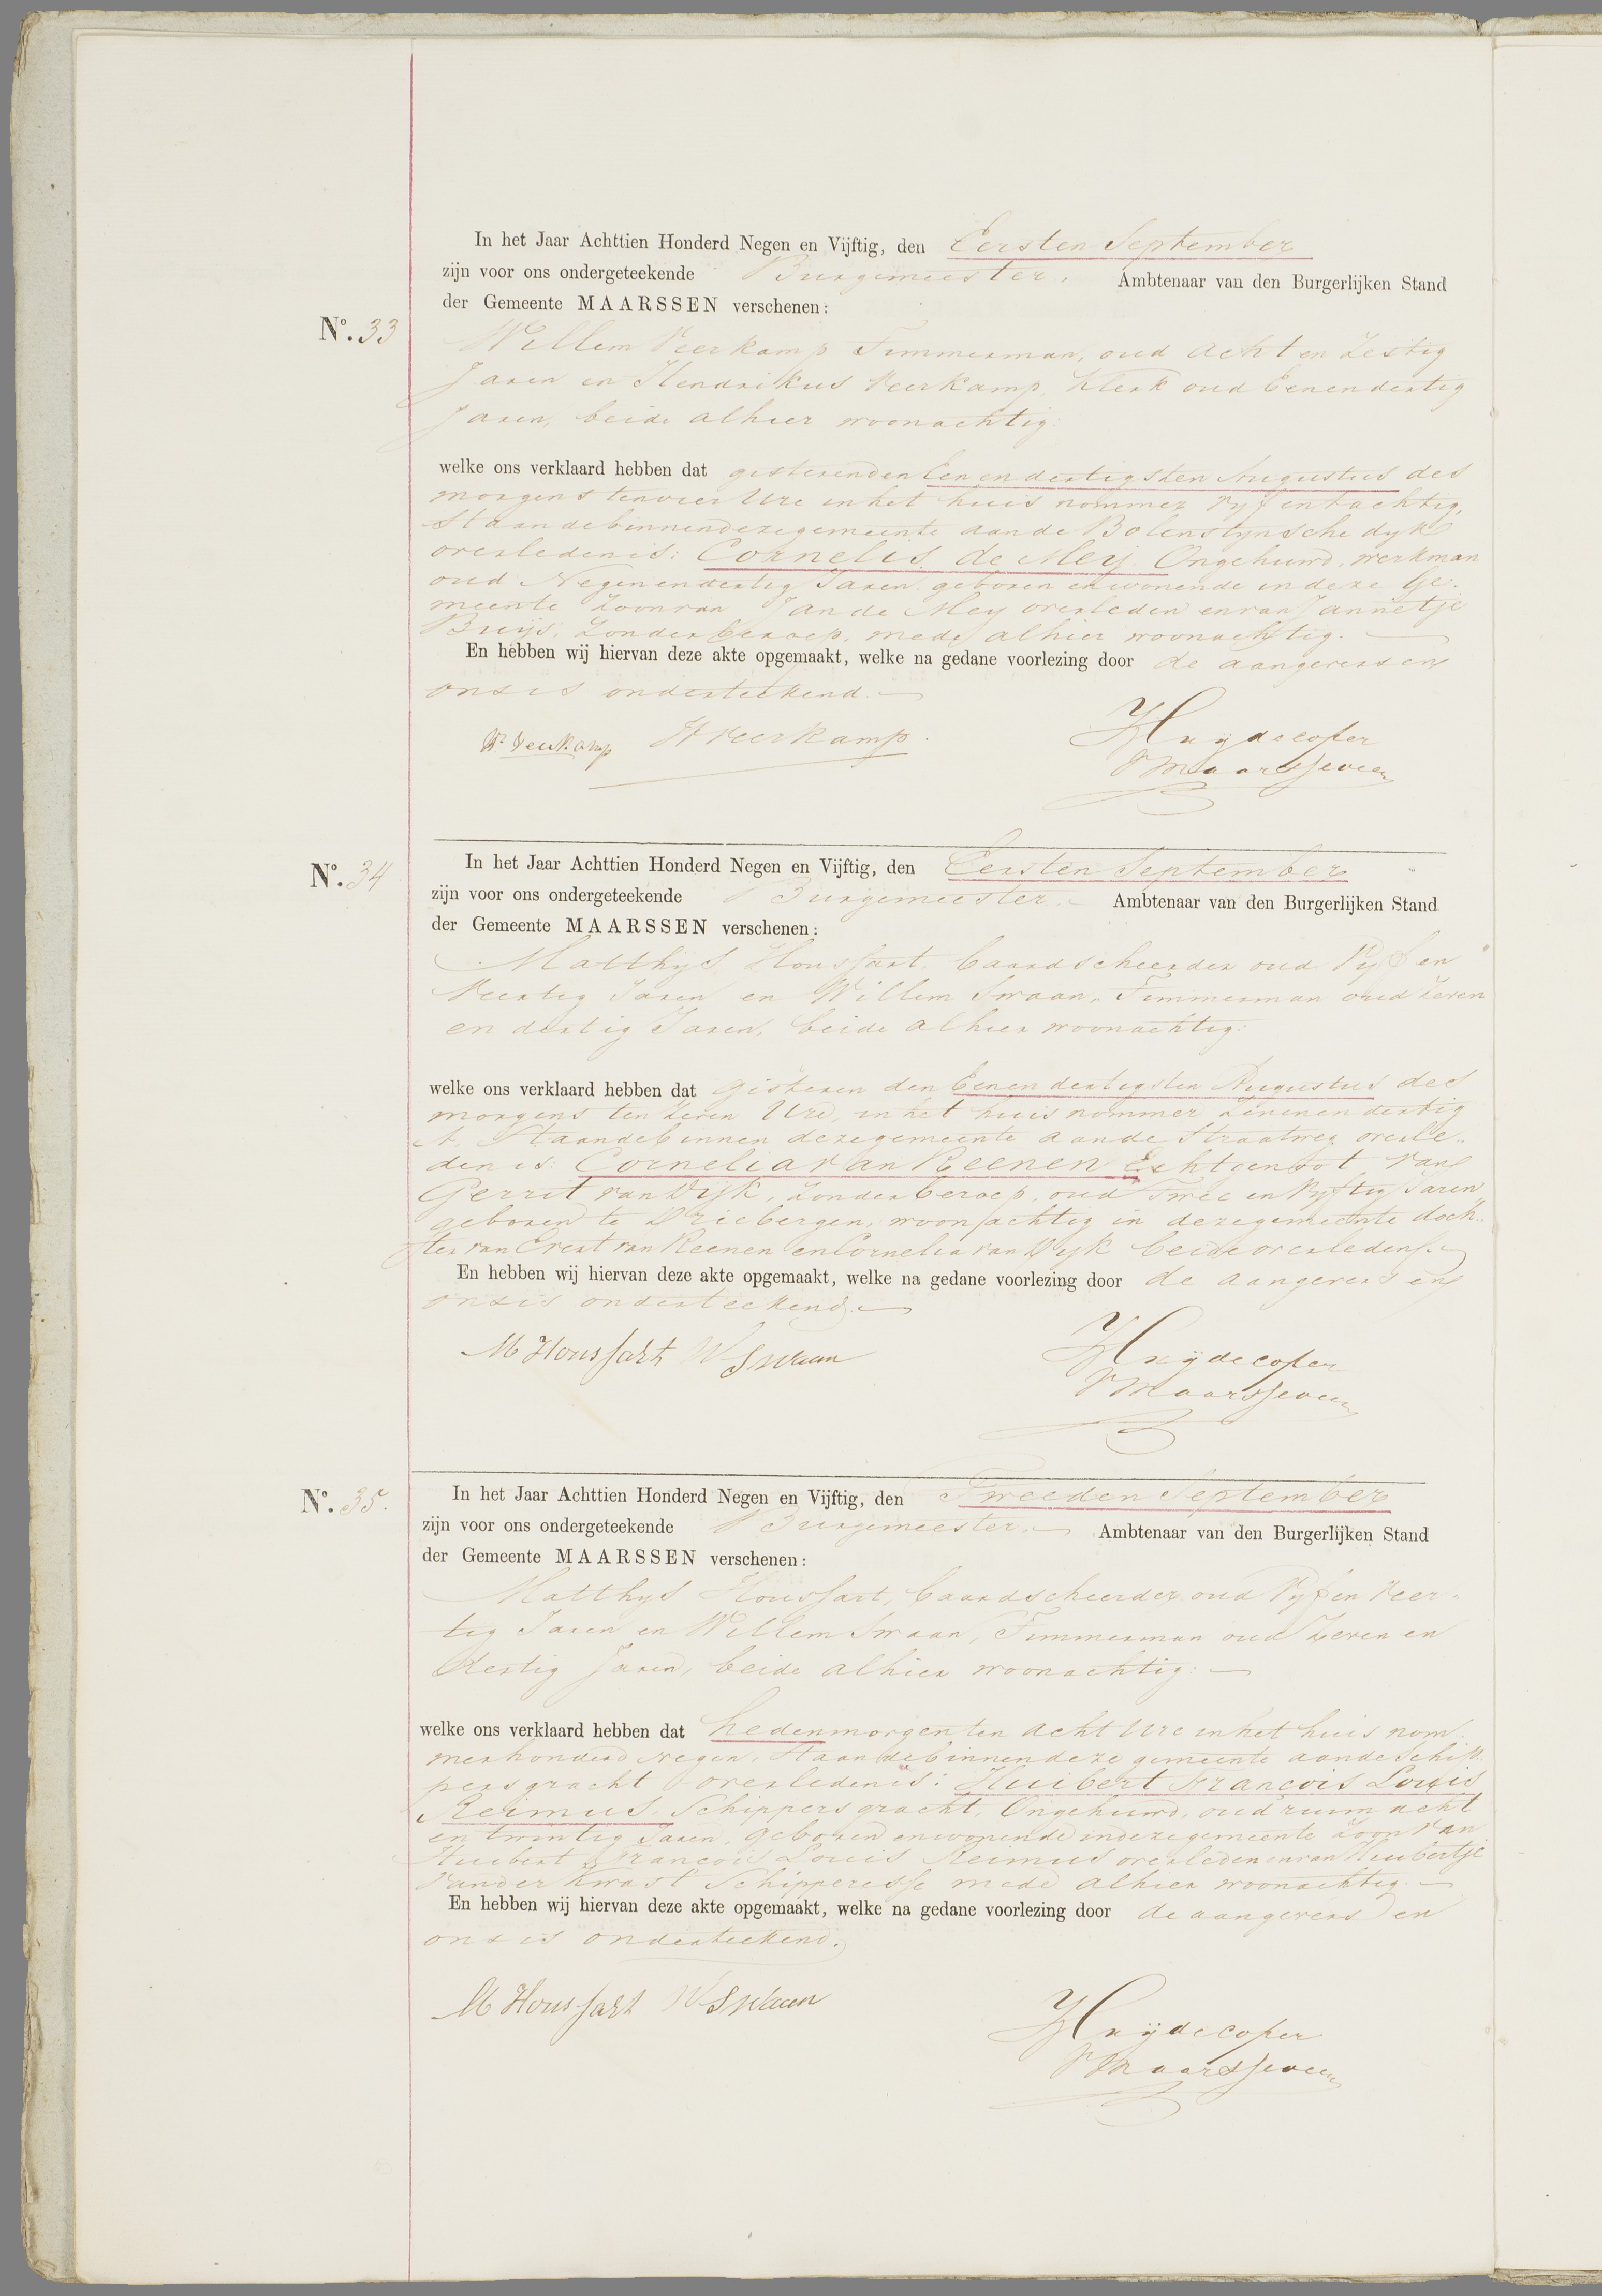 In het Jaar Achttien Honderd Negen en Vijftig, den Eersten September
zijn voor ons ondergeteekende Burgemeester, Ambtenaar van den Burgerlijken Stand
der Gemeente MAARSSEN verschenen:
No. 33
Willem Veerkamp Timmerman, oud acht en Zestig
Jaren en Hendrikus Veerkamp, Klerk oud Eenendertig
Jaren, beide alhier woonachtig:
welke ons verklaard hebben dat gisteren den Eenendertigsten Augustus des
morgens ten vier Ure in het huis nommer Vyf en tachtig,
Staande binnen deze gemeente aan de Bolenstynsche dyk
overleden is: Cornelis de Meij. Ongehuwd, werkman
oud Negenendertig Jaren, geboren en wonende in deze Ge-
meente Zoon van Jan de Mey overleden en van Jannetje
Buijs, Zonder beroep, mede alhier woonachtig.
En hebben wij hiervan deze akte opgemaakt, welke na gedane voorlezing door de aangevers en
ons is onderteekend.
W. Veerkamp H Veerkamp. Huydecoper
V Maarsseveen
No. 34
In het Jaar Achttien Honderd Negen en Vijftig, den Eersten September
zijn voor ons ondergeteekende Burgemeester. Ambtenaar van den Burgerlijken Stand
der Gemeente MAARSSEN verschenen:
Matthijs Houssart, baardscheerder oud Vyf en
Veertig Jaren en Willem Swaan, Timmerman oud Zeven
en dertig Jaren, beide alhier woonachtig:
welke ons verklaard hebben dat gisteren den Eenendertigsten Augustus des
morgens ten zeven Ure, in het huis nommer zevenendertig
A, Staande binnen deze gemeente aan de Straatweg overle-
den is: Cornelia van Reenen Echtgenoot van
Gerrit van Dijk, Zonder beroep, oud Twee en Vyftig Jaren
geboren te Driebergen, woonachtig in deze gemeente doch-
ter van Evert van Reenen en Cornelia van Dyk beide overleden.
En hebben wij hiervan deze akte opgemaakt, welke na gedane voorlezing door de aangevers en
ons is onderteekend.
M Houssart W Swaan Huydecoper
V Maarsseveen
No. 35.
In het Jaar Achttien Honderd Negen en Vijftig, den Tweeden September
zijn voor ons ondergeteekende Burgemeester. Ambtenaar van den Burgerlijken Stand
der Gemeente MAARSSEN verschenen:
Matthys Houssart, baardscheerder oud Vyf en Veer-
tig Jaren en Willem Swaan, Timmerman oud Zeven en
Dertig Jaren, beide alhier woonachtig:
welke ons verklaard hebben dat heden morgen ten acht Ure in het huis nom-
mer honderd negen, Staande binnen deze gemeente aan de Schip-
persgracht overleden is: Huibert Francois Louis
Reimus, Schippersgracht, Ongehuwd, oud ruim acht
en twintig Jaren, geboren en wonende in deze gemeente Zoon van
Huibert Francois Louis Reimus overleden en van Huibertje
van der Kwast Schipperesse mede alhier woonachtig.
En hebben wij hiervan deze akte opgemaakt, welke na gedane voorlezing door de aangevers en
ons is onderteekend.
M Houssart W Swaan Huydecoper
V Maarsseveen